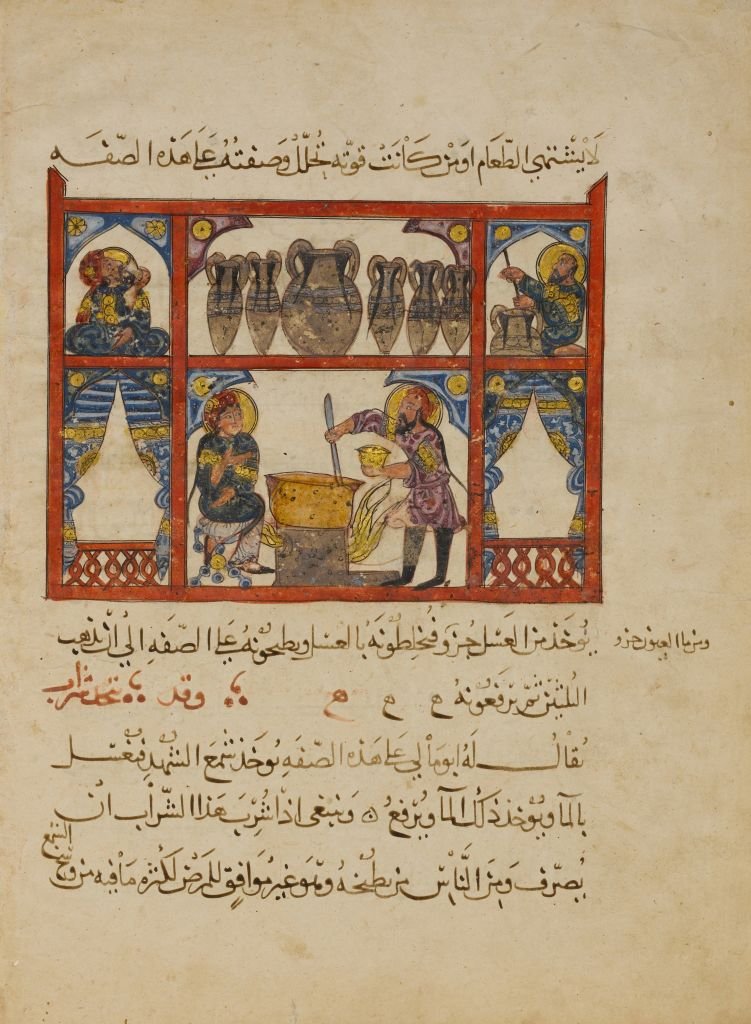 لا يشتهي الطعام او من كانت قوته تحلل وصفته على هذه الصفه
يوخذ من العسل جزو فيخلطونه بالعسل ويطبخونه على الصفه الى ان يذهب
ومن ما العيون جزو
الثلثين ثم يرفعونه ه ه ه وقد يتخذ شراب
يقال له ابومالي على هذه الصفه يوخذ شمع الشهد فيغسل
بالما ويوخذ ذلك الما ويرفع وينبغي اذا شرب هذا الشراب ان
يصرف ومن الناس من يطبخه وهو غير موافق للمرض لكثره ما فيه من وسخ
الشمع